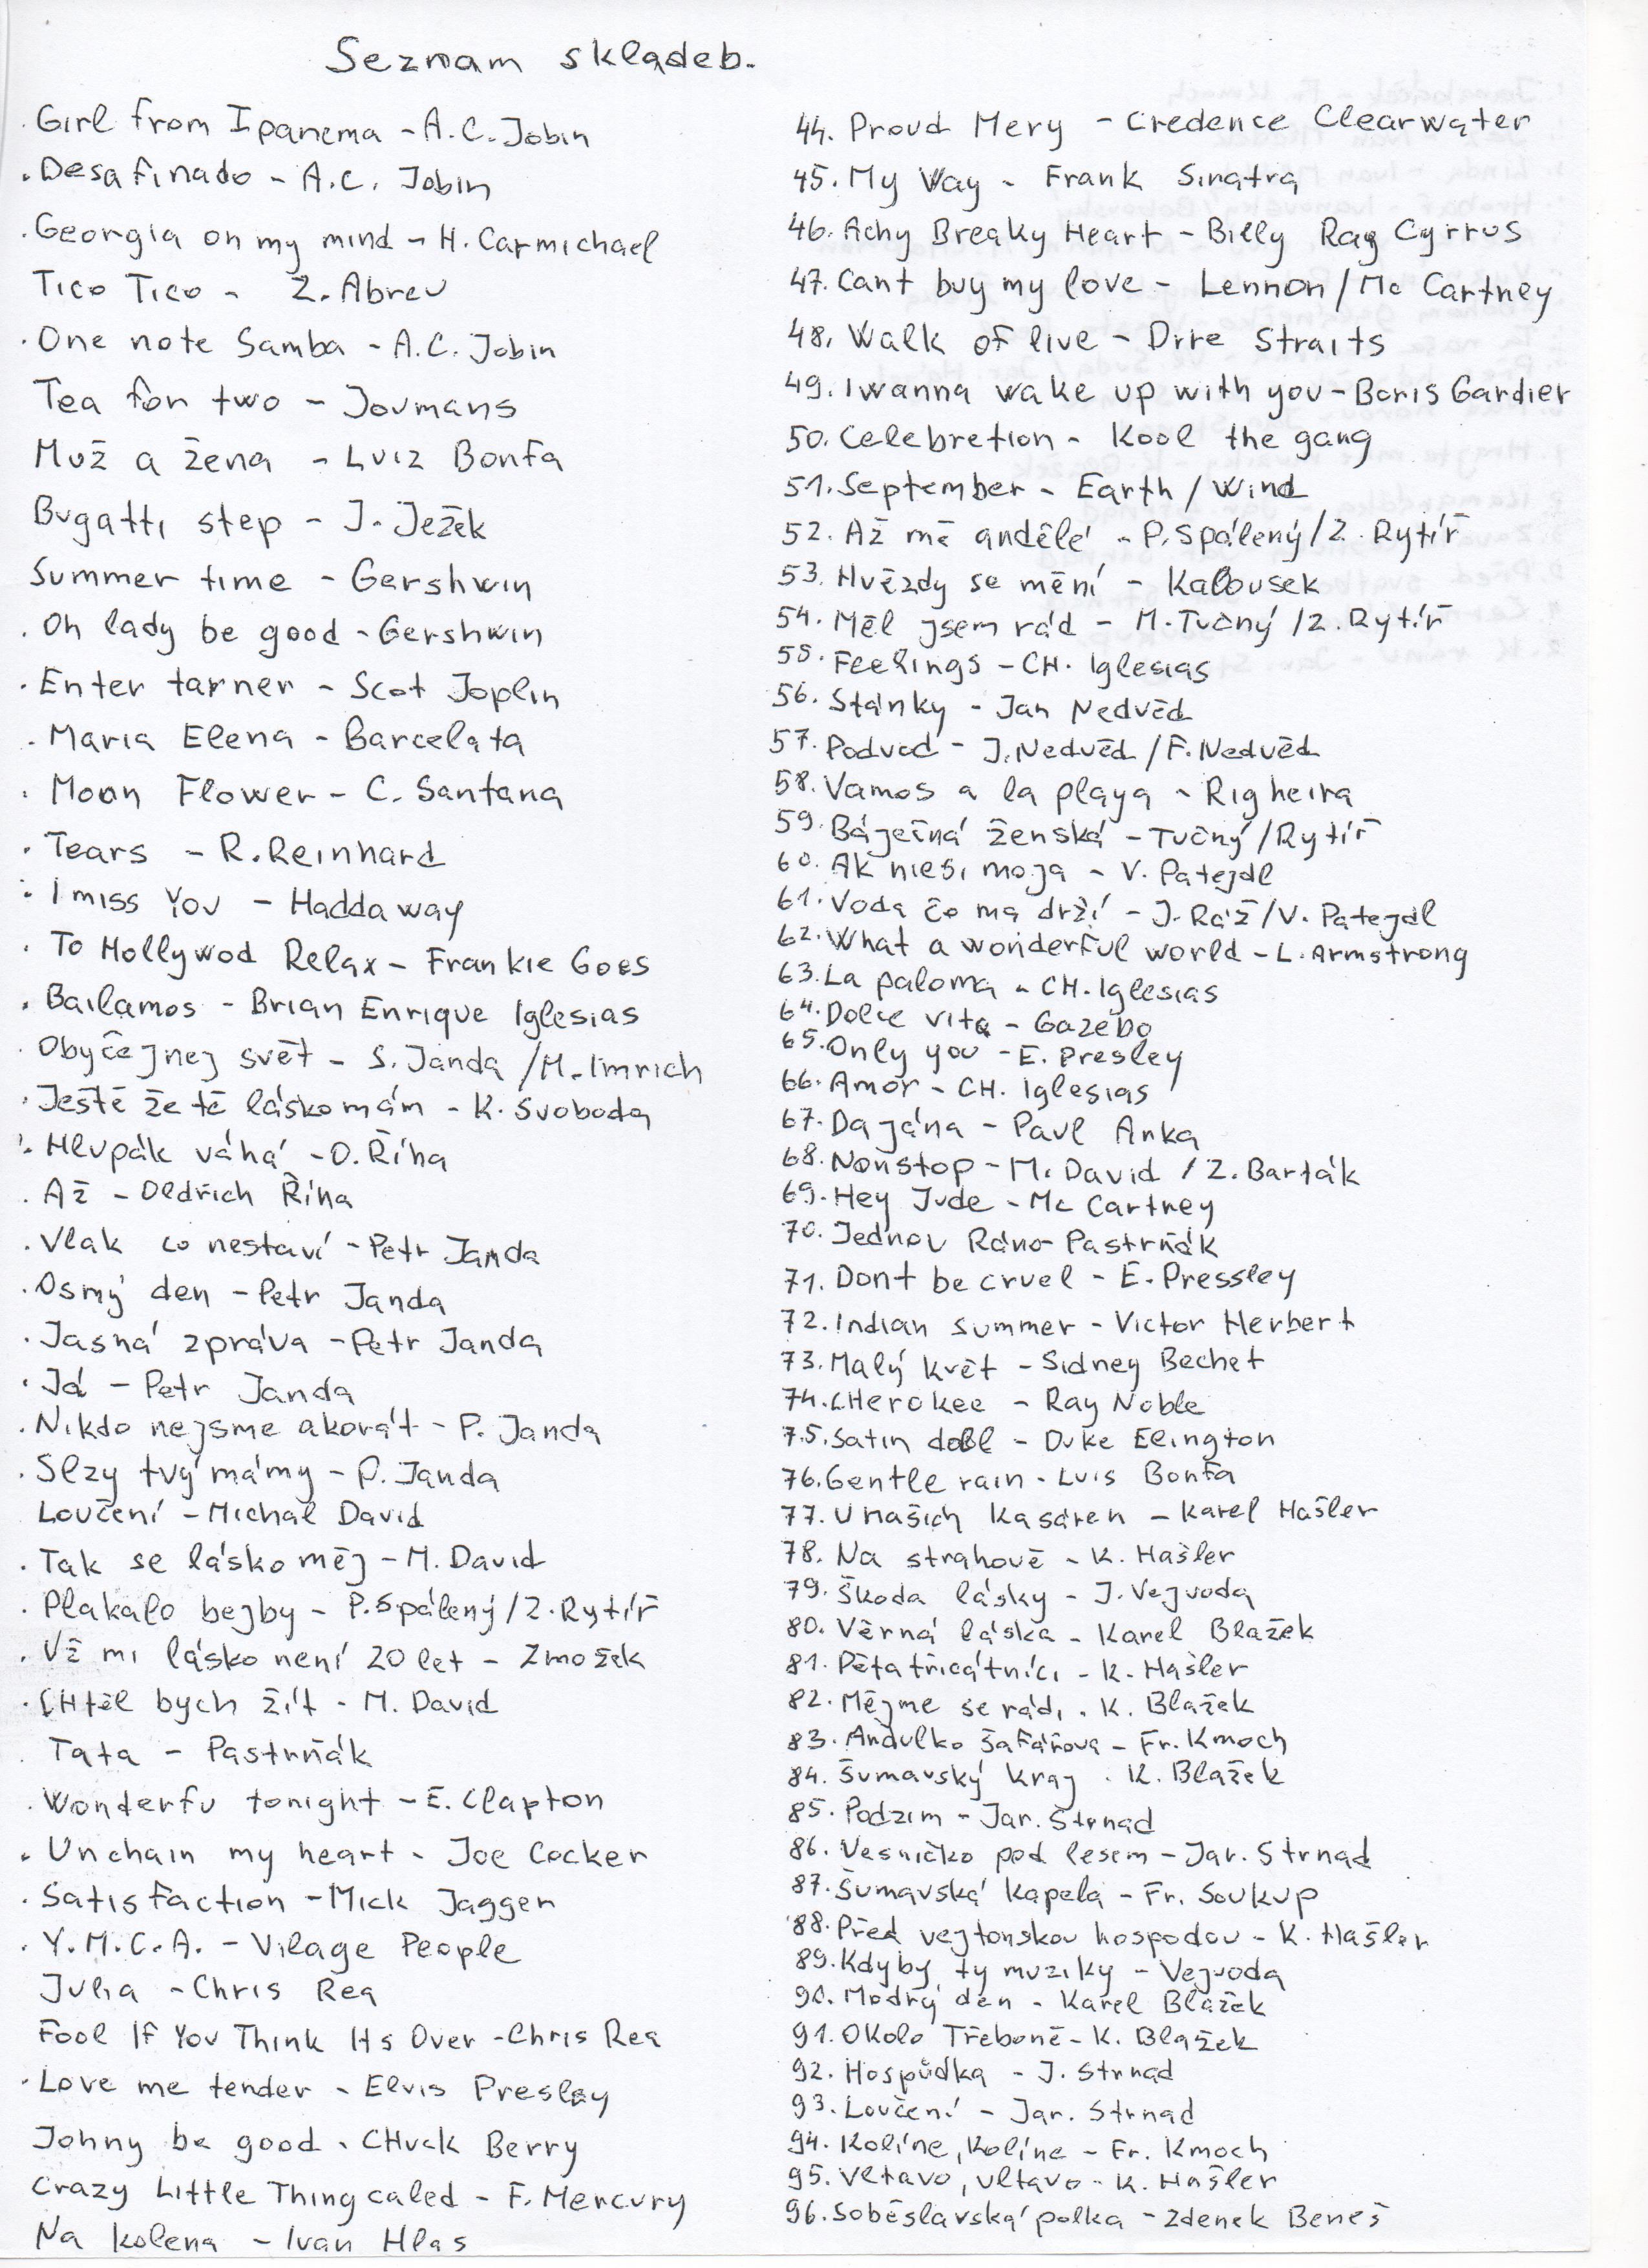 Seznam skladeb.
. Girl from Ipanema - A.C. Jobin
. Desafinado - A.C. Jobin
. Georgia on my mind - H. Carmichael
Tico Tico - Z. Abreu
. One note Samba - A.C. Jobin
Tea for two - Joumans
Muž a žena - Luiz Bonfa
Bugatti step - J. Ježek
Summer time - Gershwin
. Oh lady be good - Gershwin
. Enter tarner - Scot Joplin
. Maria Elena - Barcelata
. Moon Flower - C. Santana
. Tears - R. Reinhard
. I miss You - Haddaway
. To Hollywod Relax - Frankie Goes
. Bailamos - Brian Enrique Iglesias
. Obyčejnej svět - S. Janda / M. Imrich
. Ještě že tě lásko mám - K. Svoboda
. Hlupák váhá - O. Říha
. Až - Oldřich Říha
. Vlak co nestaví - Petr Janda
. Osmý den - Petr Janda
. Jasná zpráva - Petr Janda
. Já - Petr Janda
. Nikdo nejsme akorát - P. Janda
. Slzy tvý mámy - P. Janda
Loučení - Michal David
. Tak se lásko měj - M. David
. Plakalo bejby - P. Spálený / Z. Rytíř
. Už mi lásko není 20 let - Zmožek
. CHtěl bych žít - M. David
. Tata - Pastrňák
. Wonderfu tonight - E. Clapton
. Unchain my heart - Joe Cocker
. Satisfaction - Mick Jagger
. Y.M.C.A. - Vilage People
Julia - Chris Rea
Fool If You Think Its Over - Chris Rea
. Love me tender - Elvis Presley
Johny be good - CHuck Berry
Crazy Little Thing caled - F. Mercury
Na kolena - Ivan Hlas
44. Proud Mery - Credence Clearwater
45. My Way - Frank Sinatra
46. Achy Breaky Heart - Billy Ray Cyrrus
47. Cant buy my love - Lennon / Mc Cartney
48. Walk of live - Dire Straits
49. I wanna wake up with you - Boris Gardier
50. Celebretion - Kool the gang
51. September - Earth / Wind
52. Až mě andělé - P. Spálený / Z. Rytíř
53. Hvězdy se mění - Kalousek
54. Měl jsem rád - M. Tučný / Z. Rytíř
55. Feelings - CH. Iglesias
56. Stánky - Jan Nedvěd
57. Podvod - J. Nedvěd / F. Nedvěd
58. Vamos a la playa - Righeira
59. Báječná ženská - Tučný / Rytíř
60. Ak niesi moja - V. Patejdl
61. Voda čo ma drží - J. Ráž / V. Patejdl
62. What a wonderful world - L. Armstrong
63. La paloma - CH. Iglesias
64. Dolce vita - Gazebo
65. Only you - E. Presley
66. Amor - CH. Iglesias
67. Dajána - Paul Anka
68. Nonstop - M. David / Z. Barták
69. Hey Jude - Mc Cartney
70. Jednou Ráno - Pastrňák
71. Dont be cruel - E. Pressley
72. Indian summer - Victor Herbert
73. Malý květ - Sidney Bechet
74. CHerokee - Ray Noble
75. Satin dobl - Duke Elington
76. Gentle rain - Luis Bonfa
77. U našich kasáren - Karel Hašler
78. Na strahově - K. Hašler
79. Škoda lásky - J. Vejvoda
80. Věrná láska - Karel Blažek
81. Pětatřicátníci - K. Hašler
82. Mějme se rádi - K. Blažek
83. Andulko šafářova - Fr. Kmoch
84. Šumavský kraj - K. Blažek
85. Podzim - Jar. Strnad
86. Vesničko pod lesem - Jar. Strnad
87. Šumavská kapela - Fr. Soukup
88. Před vejtonskou hospodou - K. Hašler
89. Kdyby ty muziky - Vejvoda
90. Modrý den - Karel Blažek
91. Okolo Třeboně - K. Blažek
92. Hospůdka - J. Strnad
93. Loučení - Jar. Strnad
94. Kolíne, Kolíne - Fr. Kmoch
95. Vltavo, vltavo - K. Hašler
96. Soběslavská polka - Zdenek Beneš